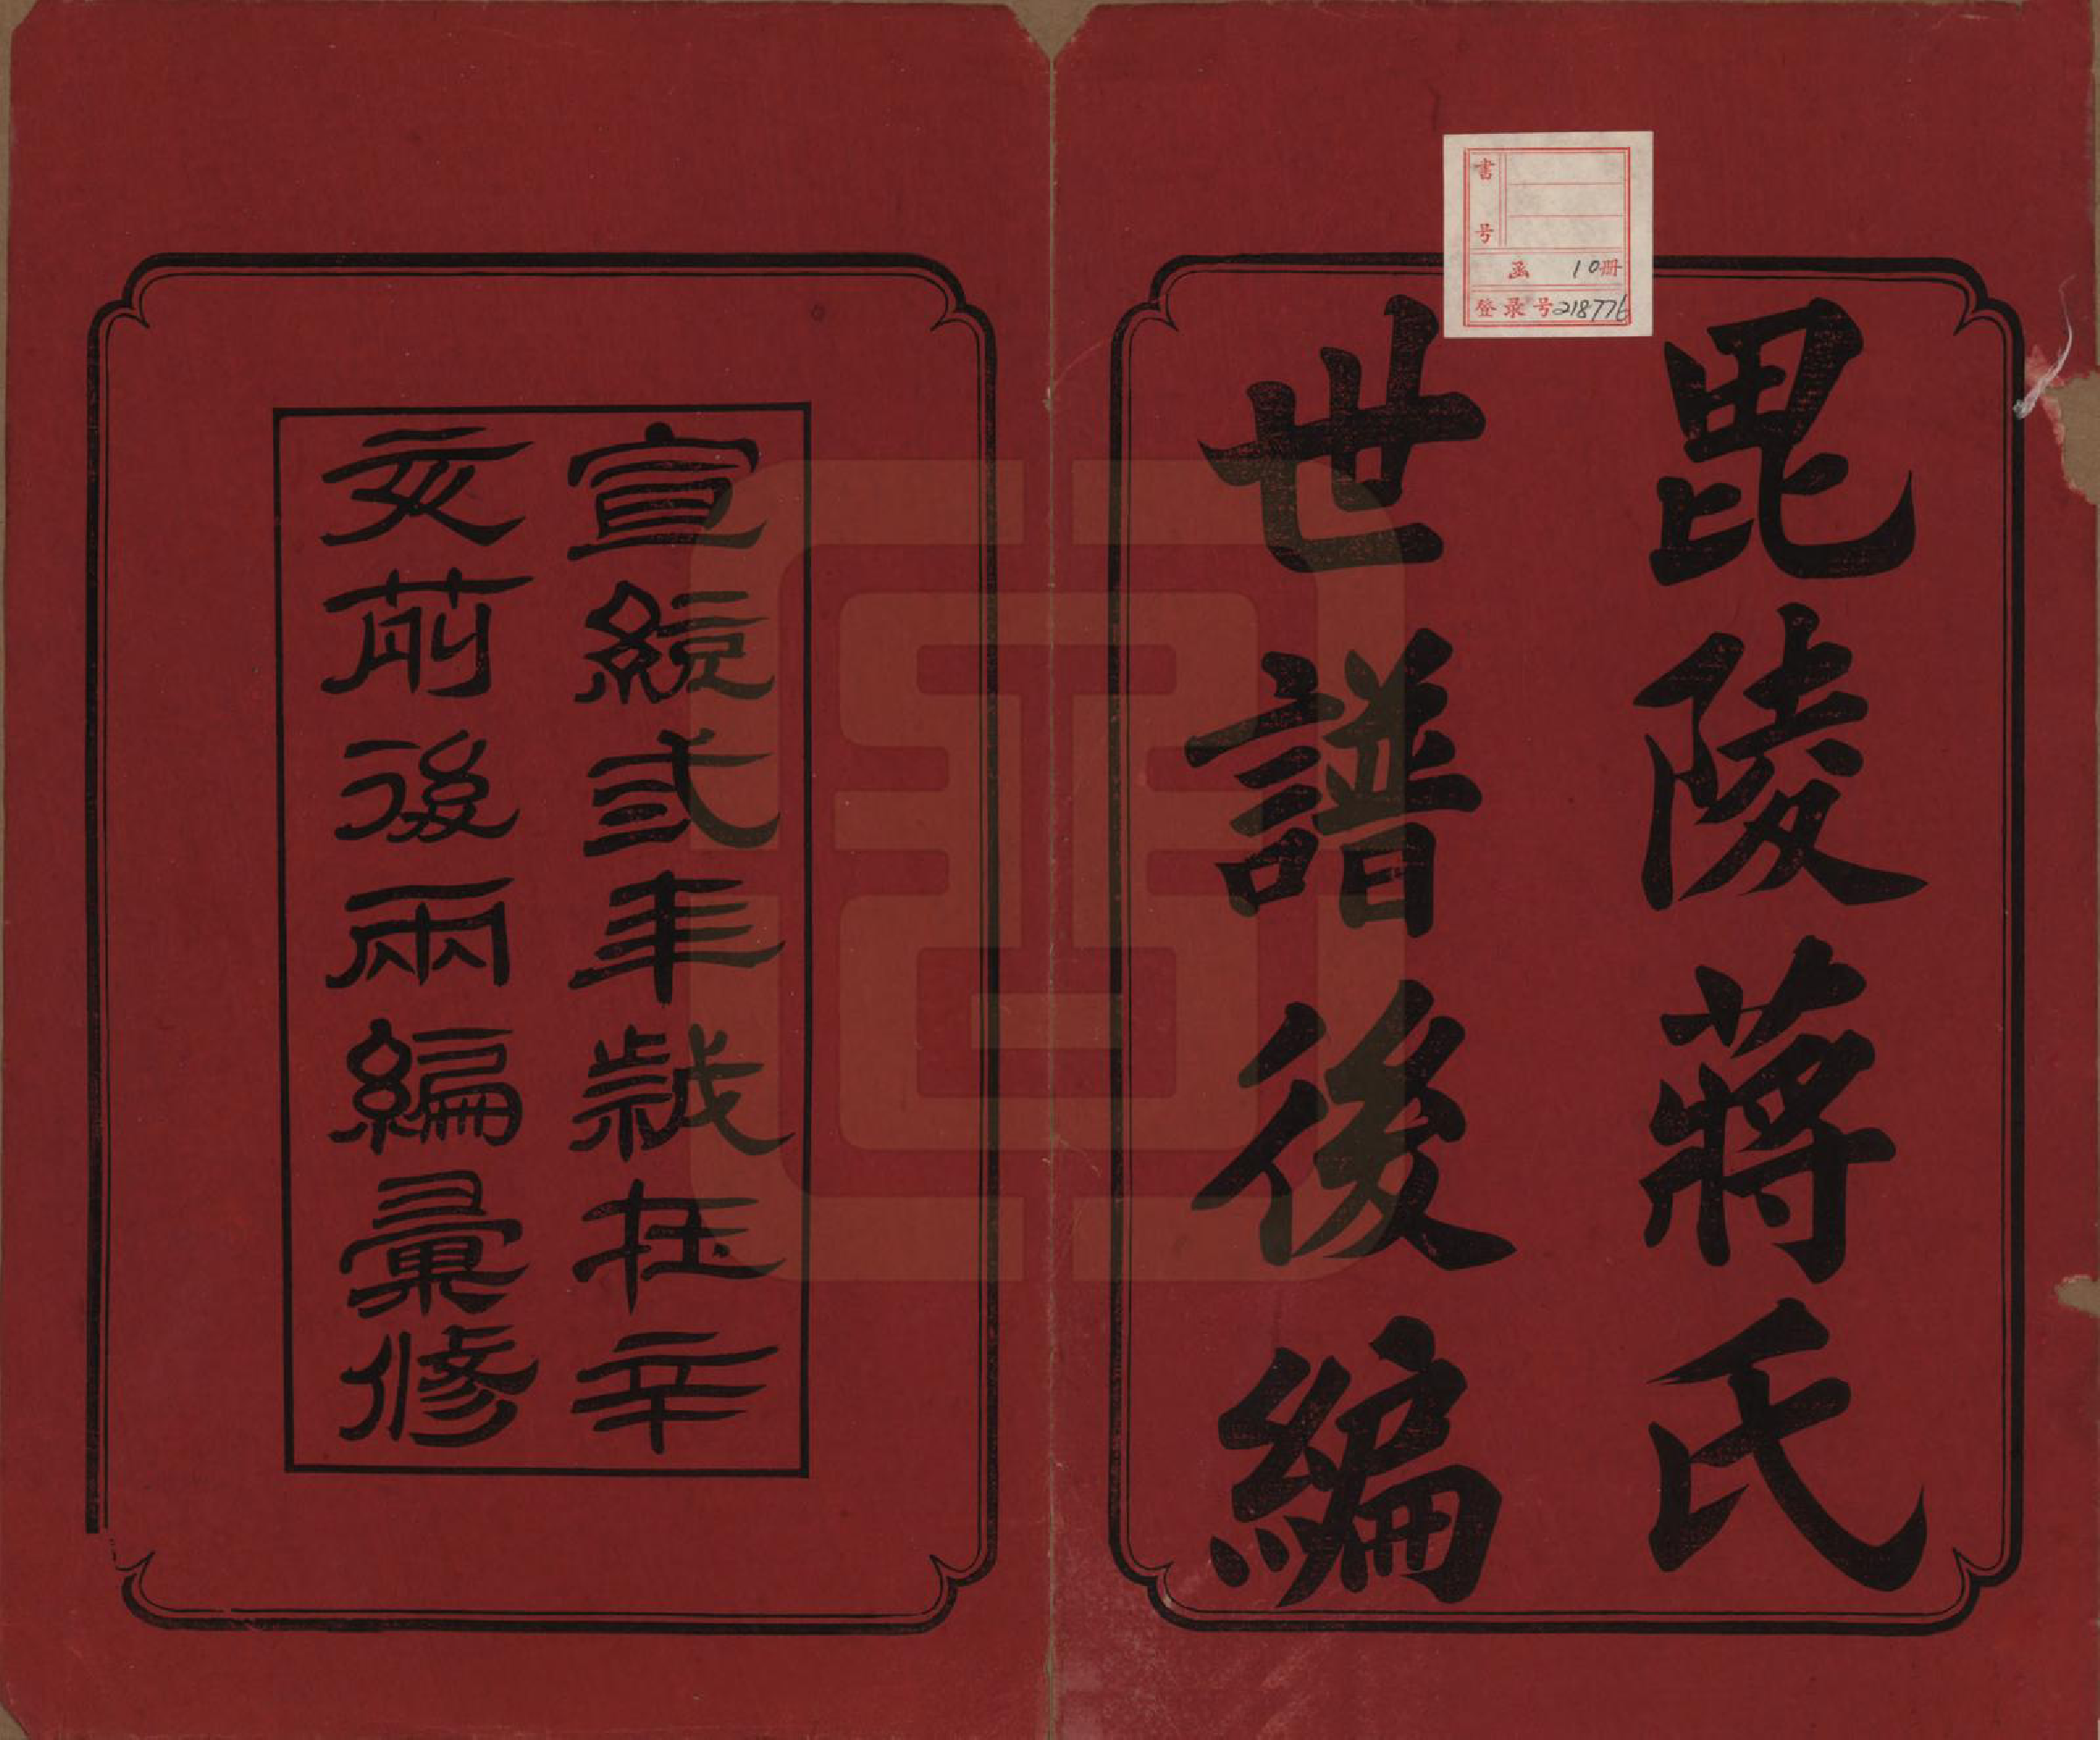 毘陵蔣氏
世譜後編
書号
函 10冊
登录号218776
宣統弍年歲在辛
亥前後兩編彙修